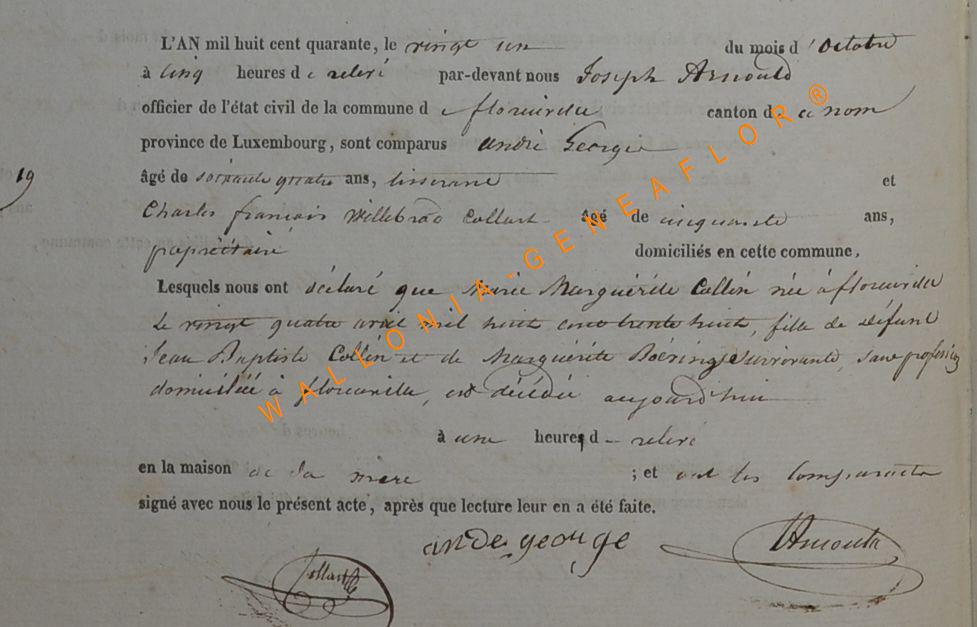 L'AN mil huit cent quarante, le vingt un du mois d'Octobre
à cinq heures de relevé par-devant nous Joseph Arnould
officier de l'état civil de la commune de florenville canton de ce nom
province de Luxembourg, sont comparus andré George
19 âgé de soixante quatre ans, tisserand et
Charles françois Willebrod Collart âgé de cinquante ans,
propriétaire domiciliés en cette commune,
Lesquels nous ont déclaré que Marie Marguérite Collin née à florenville
le vingt quatre avril mil huit cent trente huit, fille de défunt
Jean Baptiste Collin et de Marguérite survivante, sans profession
domiciliée à florenville, est décédée aujourd'hui
à une heure de relevé
en la maison de sa mère ; et ont les Comparants
signé avec nous le présent acte, après que lecture leur en a été faite.
ande george
Collart Arnould
WALLONIA-GENEAFLOR®